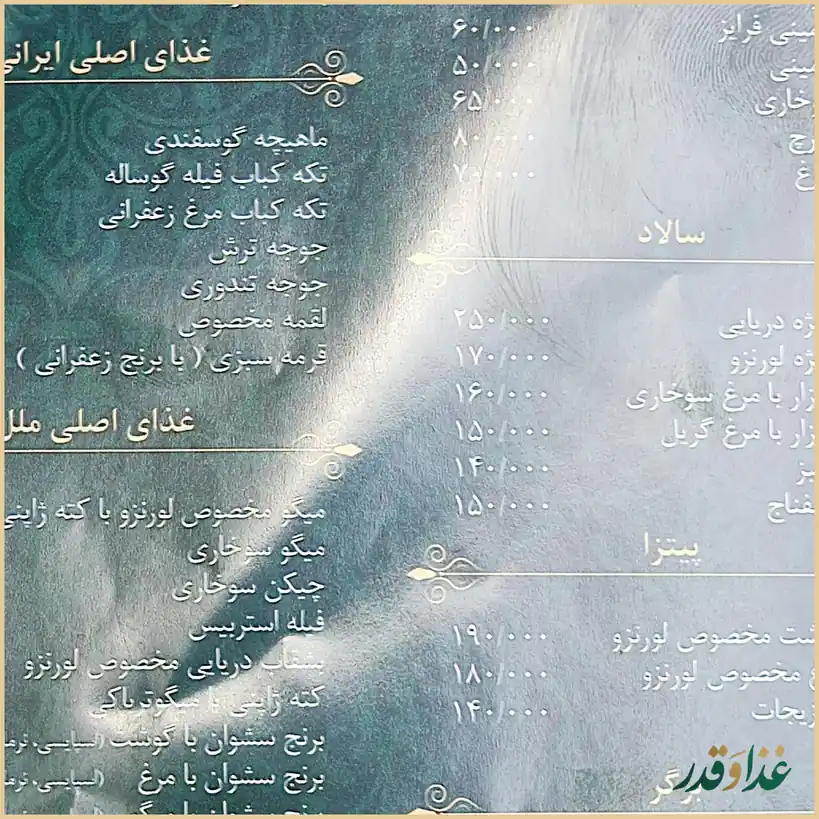 مینی فرایز ۶۰/۰۰۰
مینی ۵۰/۰۰۰
وخاری ۶۵/۰۰۰
رچ ۸۰/۰۰۰
غ ۷۰/۰۰۰
سالاد
ژه دریایی ۲۵۰/۰۰۰
ژه لورنزو ۱۷۰/۰۰۰
زار با مرغ سوخاری ۱۶۰/۰۰۰
زار با مرغ گریل ۱۵۰/۰۰۰
بز ۱۴۰/۰۰۰
فناج ۱۵۰/۰۰۰
پیتزا
شت مخصوص لورنزو ۱۹۰/۰۰۰
غ مخصوص لورنزو ۱۸۰/۰۰۰
زیجات ۱۴۰/۰۰۰
برگر
غذای اصلی ایرانی
ماهیچه گوسفندی
تکه کباب فیله گوساله
تکه کباب مرغ زعفرانی
جوجه ترش
جوجه تندوری
لقمه مخصوص
قرمه سبزی ( با برنج زعفرانی )
غذای اصلی ملل
میگو مخصوص لورنزو با کته ژاپنی
میگو سوخاری
چیکن سوخاری
فیله استریپس
بشقاب دریایی مخصوص لورنزو
کته ژاپنی با میگوتریاکی
برنج سشوان با گوشت (اسپایسی، نرما
برنج سشوان با مرغ (اسپایسی، نرم
برنج سشوان با میگو
غذا و قدر